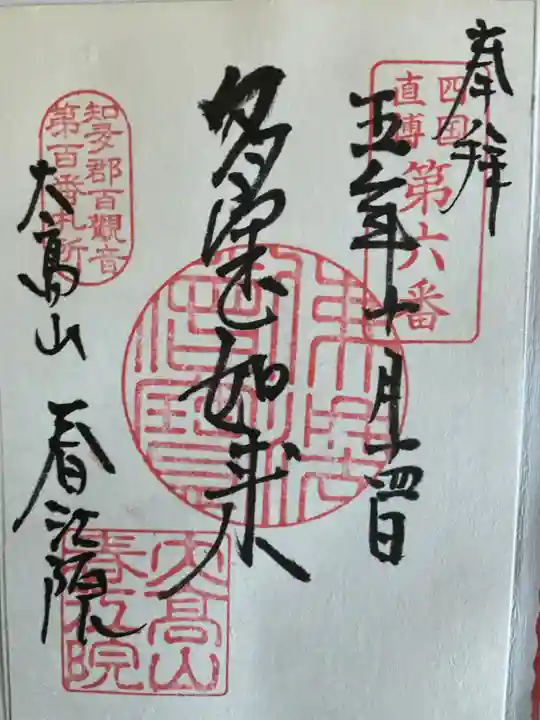 奉拝
四国
直傳
第六番
五年十月
四日
如来
知多郡百觀音
第百番札所
大高山 春江院
大高山
春江院